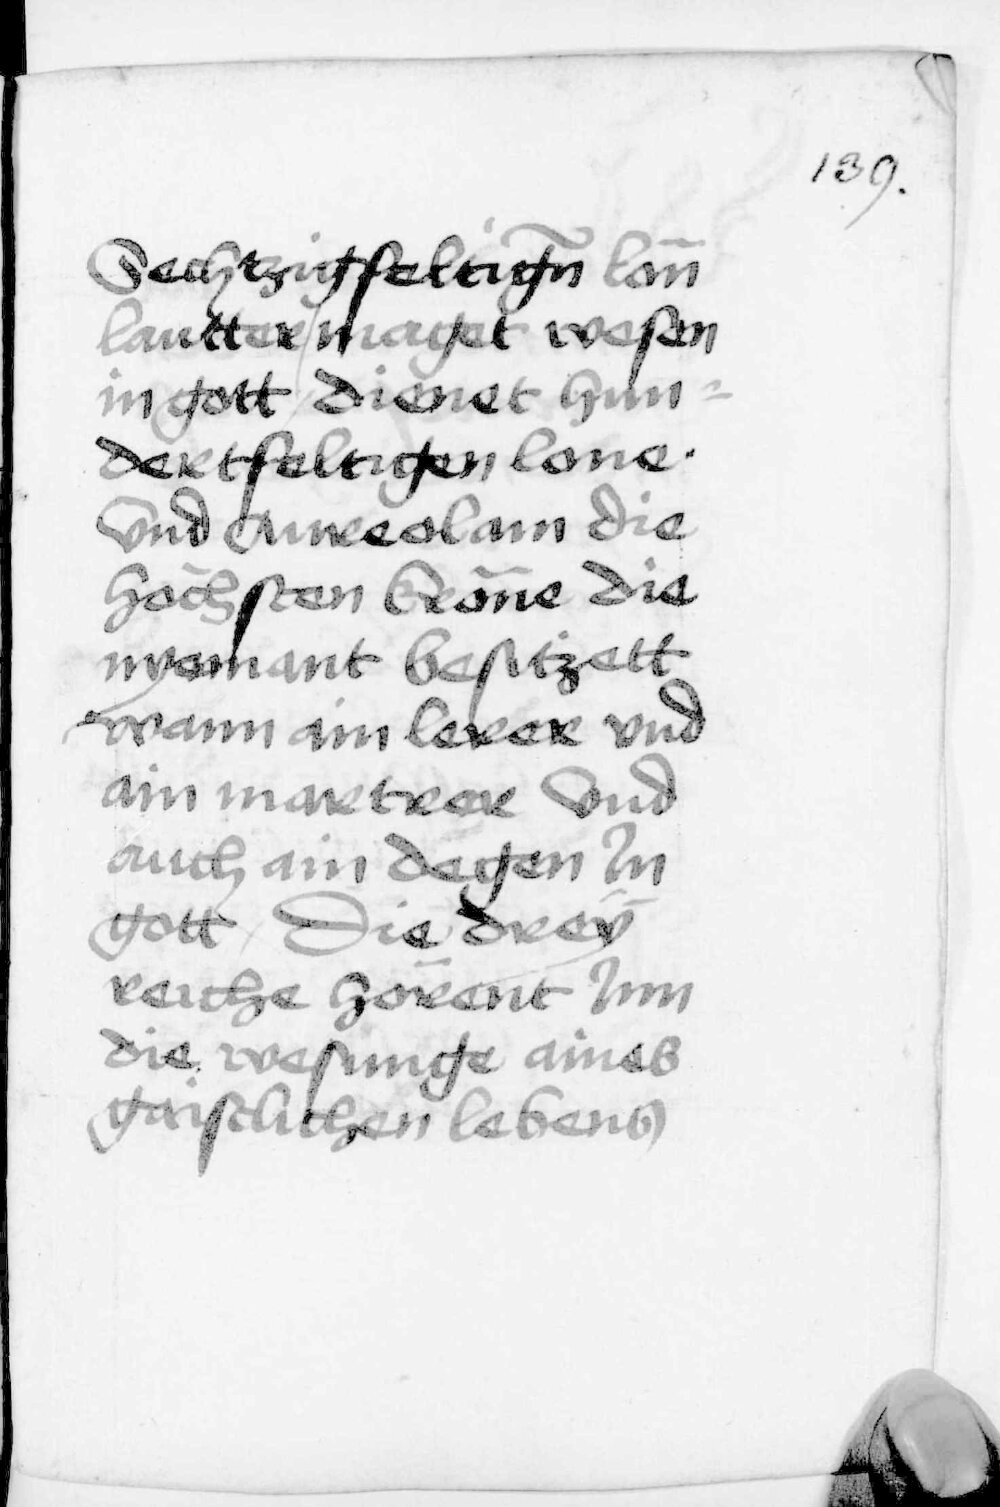 139.
Sechtzigfeltigñ lōn
lautter / maget wesen
in gott / dienet hun=
dertfeltigen lone.
Vnd Aureolam die
höchsten krōne die
nyemant besitzett
wann ain lerer vnd
ain martrer Vnd
auch ain degen In
gott / Die dreÿ
reiche hörent Inn
die wesunge aines
gaistlichen lebens